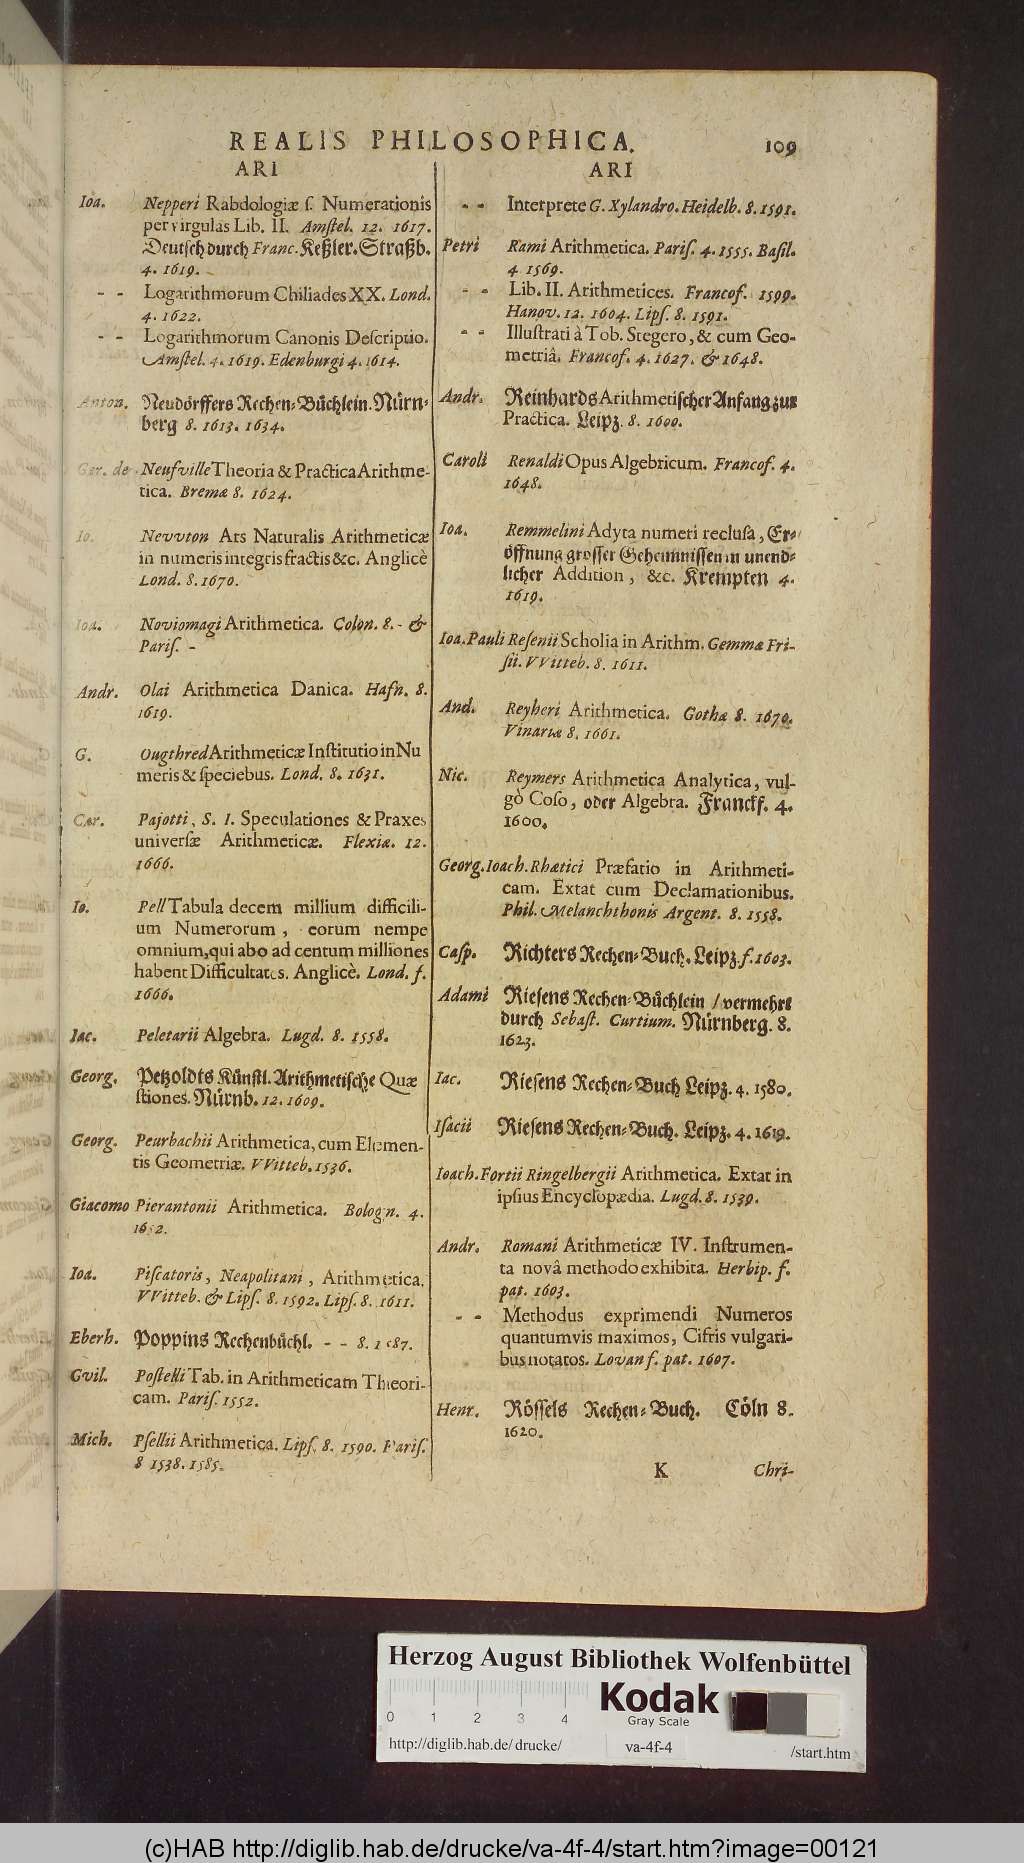 REALIS PHILOSOPHICA. 109
ARI
Ioa. Nepperi Rabdologiæ ſ. Numerationis
per virgulas Lib. II. Amſtel. 12. 1617.
Deutſch durch Franc. Keßler. Straßb.
4. 1619.
- - Logarithmorum Chiliades XX. Lond.
4. 1622.
- - Logarithmorum Canonis Deſcriptio.
Amſtel. 4. 1619. Edenburgi 4. 1614.
Anton. Neudörffers Rechen-Büchlein. Nürn-
berg 8. 1613. 1634.
Ger. de Neufville Theoria & Practica Arithme-
tica. Bremæ 8. 1624.
Io. Nevvton Ars Naturalis Arithmeticæ
in numeris integris fractis &c. Anglicè
Lond. 8. 1670.
Ioa. Noviomagi Arithmetica. Colon. 8. - &
Pariſ. -
Andr. Olai Arithmetica Danica. Hafn. 8.
1619.
G. Ougthred Arithmeticæ Inſtitutio in Nu
meris & ſpeciebus. Lond. 8. 1631.
Car. Pajotti, S. I. Speculationes & Praxes
univerſæ Arithmeticæ. Flexiæ. 12.
1666.
Io. Pell Tabula decem millium difficili-
um Numerorum, eorum nempe
omnium, qui abo ad centum milliones
habent Difficultates. Anglicè. Lond. f.
1666.
Iac. Peletarii Algebra. Lugd. 8. 1558.
Georg. Petzoldts Künſtl. Arithmetiſche Quæ
ſtiones. Nürnb. 12. 1609.
Georg. Peurbachii Arithmetica, cum Elemen-
tis Geometriæ. VVitteb. 1536.
Giacomo Pierantonii Arithmetica. Bologn. 4.
Ioa. Piſcatoris, Neapolitani, Arithmetica.
VVitteb. & Lipſ. 8. 1592. Lipſ. 8. 1611.
Eberh. Poppins Rechenbüchl. - - 8.
Gvil. Poſtelli Tab. in Arithmeticam Theori-
cam. Pariſ. 1552.
Mich. Pſellii Arithmetica. Lipſ. 8. 1590. Pariſ.
8 1538. 1585.
ARI
- - Interprete G. Xylandro. Heidelb. 8. 1591.
Petri Rami Arithmetica. Pariſ. 4. 1555. Baſil.
4 1569.
- - Lib. II. Arithmetices. Francof. 1599.
Hanov. 12. 1604. Lipſ. 8. 1591.
- - Illuſtrati à Tob. Stegero, & cum Geo-
metriâ. Francof. 4. 1627. & 1648.
Andr. Reinhards Arithmetiſcher Anfang zur
Practica. Leipz. 8. 1600.
Caroli Renaldi Opus Algebricum. Francof. 4.
1648.
Ioa. Remmelini Adyta numeri recluſa, Er-
öffnung groſſer Geheimniſſen in unend-
licher Addition, &c. Krempten 4.
1619.
Ioa. Pauli Reſenii Scholia in Arithm. Gemmæ Fri-
ſii. VVitteb. 8. 1611.
And. Reyheri Arithmetica. Gothæ 8. 1670.
Vinariæ 8. 1661.
Nic. Reymers Arithmetica Analytica, vul-
gò Coſo, oder Algebra. Franckf. 4.
1600.
Georg. Ioach. Rhætici Præfatio in Arithmeti-
cam. Extat cum Declamationibus.
Phil. Melanchthonis Argent. 8. 1558.
Caſp. Richters Rechen-Buch. Leipz. f. 1603.
Adami Rieſens Rechen-Büchlein / vermehrt
durch Sebaſt. Curtium. Nürnberg. 8.
1623.
Iac. Rieſens Rechen-Buch Leipz. 4. 1580.
Iſacii Rieſens Rechen-Buch. Leipz. 4. 1619.
Ioach. Fortii Ringelbergii Arithmetica. Extat in
ipſius Encyclopædia. Lugd. 8. 1539.
Andr. Romani Arithmeticæ IV. Inſtrumen-
ta novâ methodo exhibita. Herbip. f.
pat. 1603.
- - Methodus exprimendi Numeros
quantumvis maximos, Cifris vulgari-
bus notatos. Lovan f. pat. 1607.
Henr. Röſſels Rechen-Buch. Cöln 8.
1620.
K Chri-
Herzog August Bibliothek Wolfenbüttel
0 1 2 3 4
Kodak
Gray Scale
http://diglib.hab.de/drucke/ va-4f-4 /start.htm
(c)HAB http://diglib.hab.de/drucke/va-4f-4/start.htm?image=00121